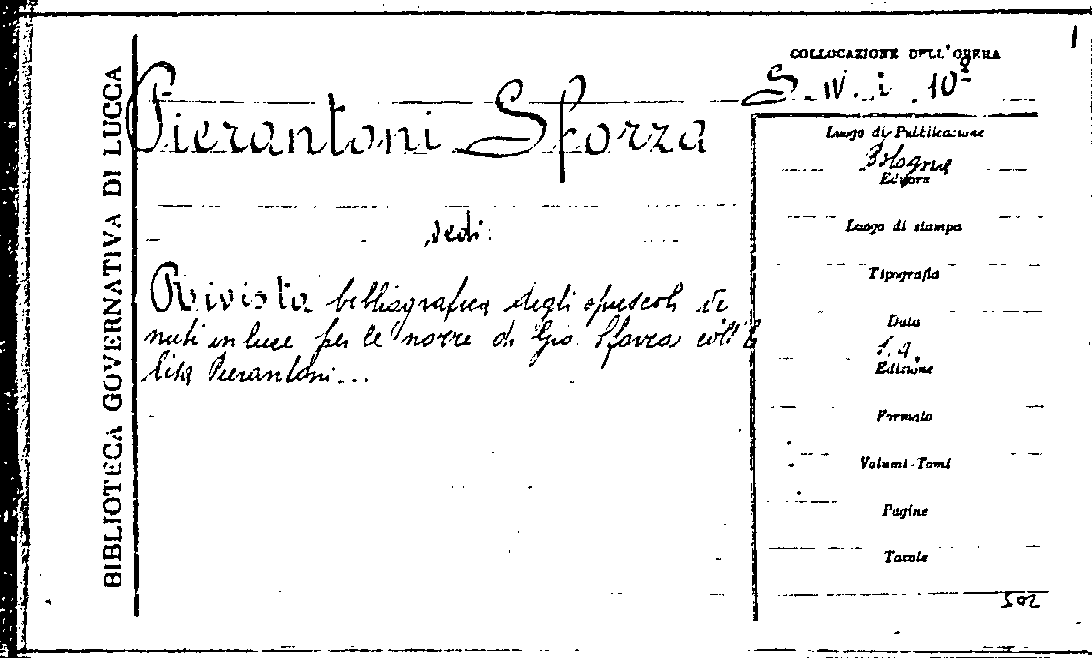 BIBLIOTECA GOVERNATIVA DI LUCCA
1
COLLOCAZIONE DELL'OPERA
S. IV. i. 10²
Pierantoni Sforza
vedi:
Rivista bibliografica degli opuscoli ve
nuti in luce per le nozze di Gio. Sforza coll' E
lisa Pierantoni...
Luogo di Pubblicazione
Bologna
Editore
Luogo di stampa
Tipografia
Data
s. a.
Edizione
Formato
Volumi-Tomi
Pagine
Tavole
502